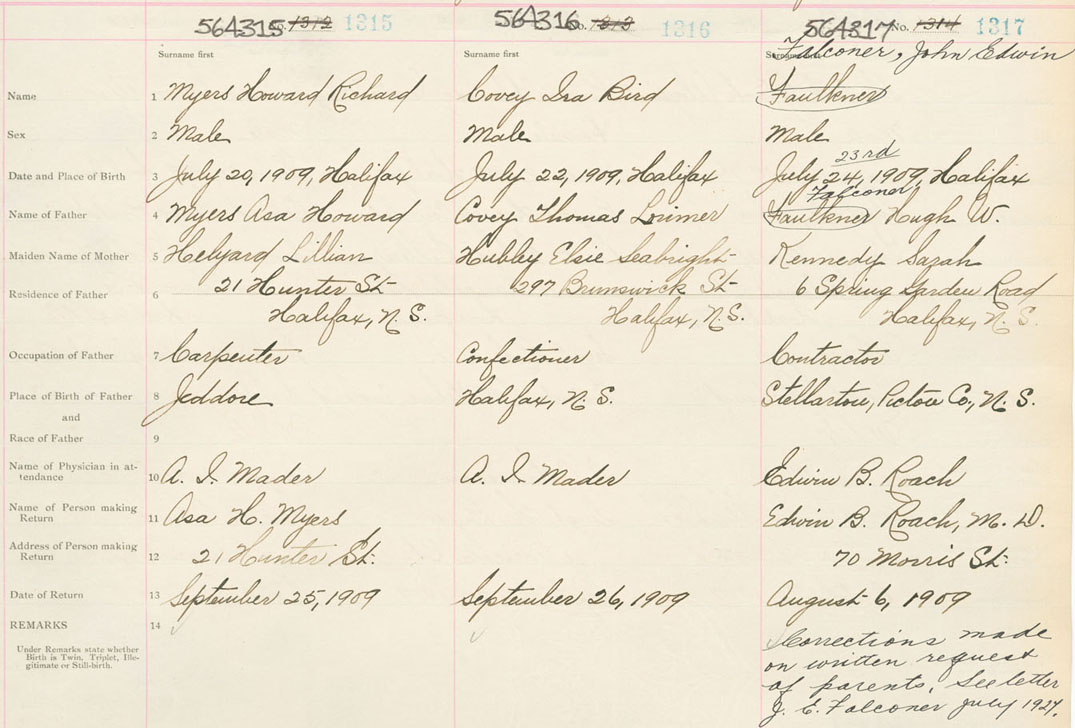 564315 No. 1312 1315 564316 No. 1313 1316 564317 No. 1314 1317
Surname first Surname first Surname first Falconer, John Edwin
Name 1 Myers Howard Richard Covey Ira Bird Faulkner
Sex 2 Male Male Male
23rd
Date and Place of Birth 3 July 20, 1909, Halifax July 22, 1909, Halifax July 24, 1909, Halifax
Falconer
Name of Father 4 Myers Asa Howard Covey Thomas Lorimer Faulkner Hugh W.
Maiden Name of Mother 5 Helyard Lillian Hubley Elsie Seabright Kennedy Sarah
Residence of Father 6 21 Hunter St 297 Brunswick St 6 Spring Garden Road
Halifax, N.S. Halifax, N.S. Halifax, N.S.
Occupation of Father 7 Carpenter Confectioner Contractor
Place of Birth of Father 8 Jeddore Halifax, N.S. Stellarton, Pictou Co., N.S.
and
Race of Father 9
Name of Physician in at-
tendance 10 A. I. Mader A. I. Mader Edwin B. Roach
Name of Person making
Return 11 Asa H. Myers Edwin B. Roach, M.D.
Address of Person making
Return 12 21 Hunter St. 70 Morris St.
Date of Return 13 September 25, 1909 September 26, 1909 August 6, 1909
REMARKS 14
Under Remarks state whether
Birth is Twin, Triplet, Ille-
gitimate or Still-birth.
Corrections made
on written request
of parents. See letter
J. E. Falconer July 1927.